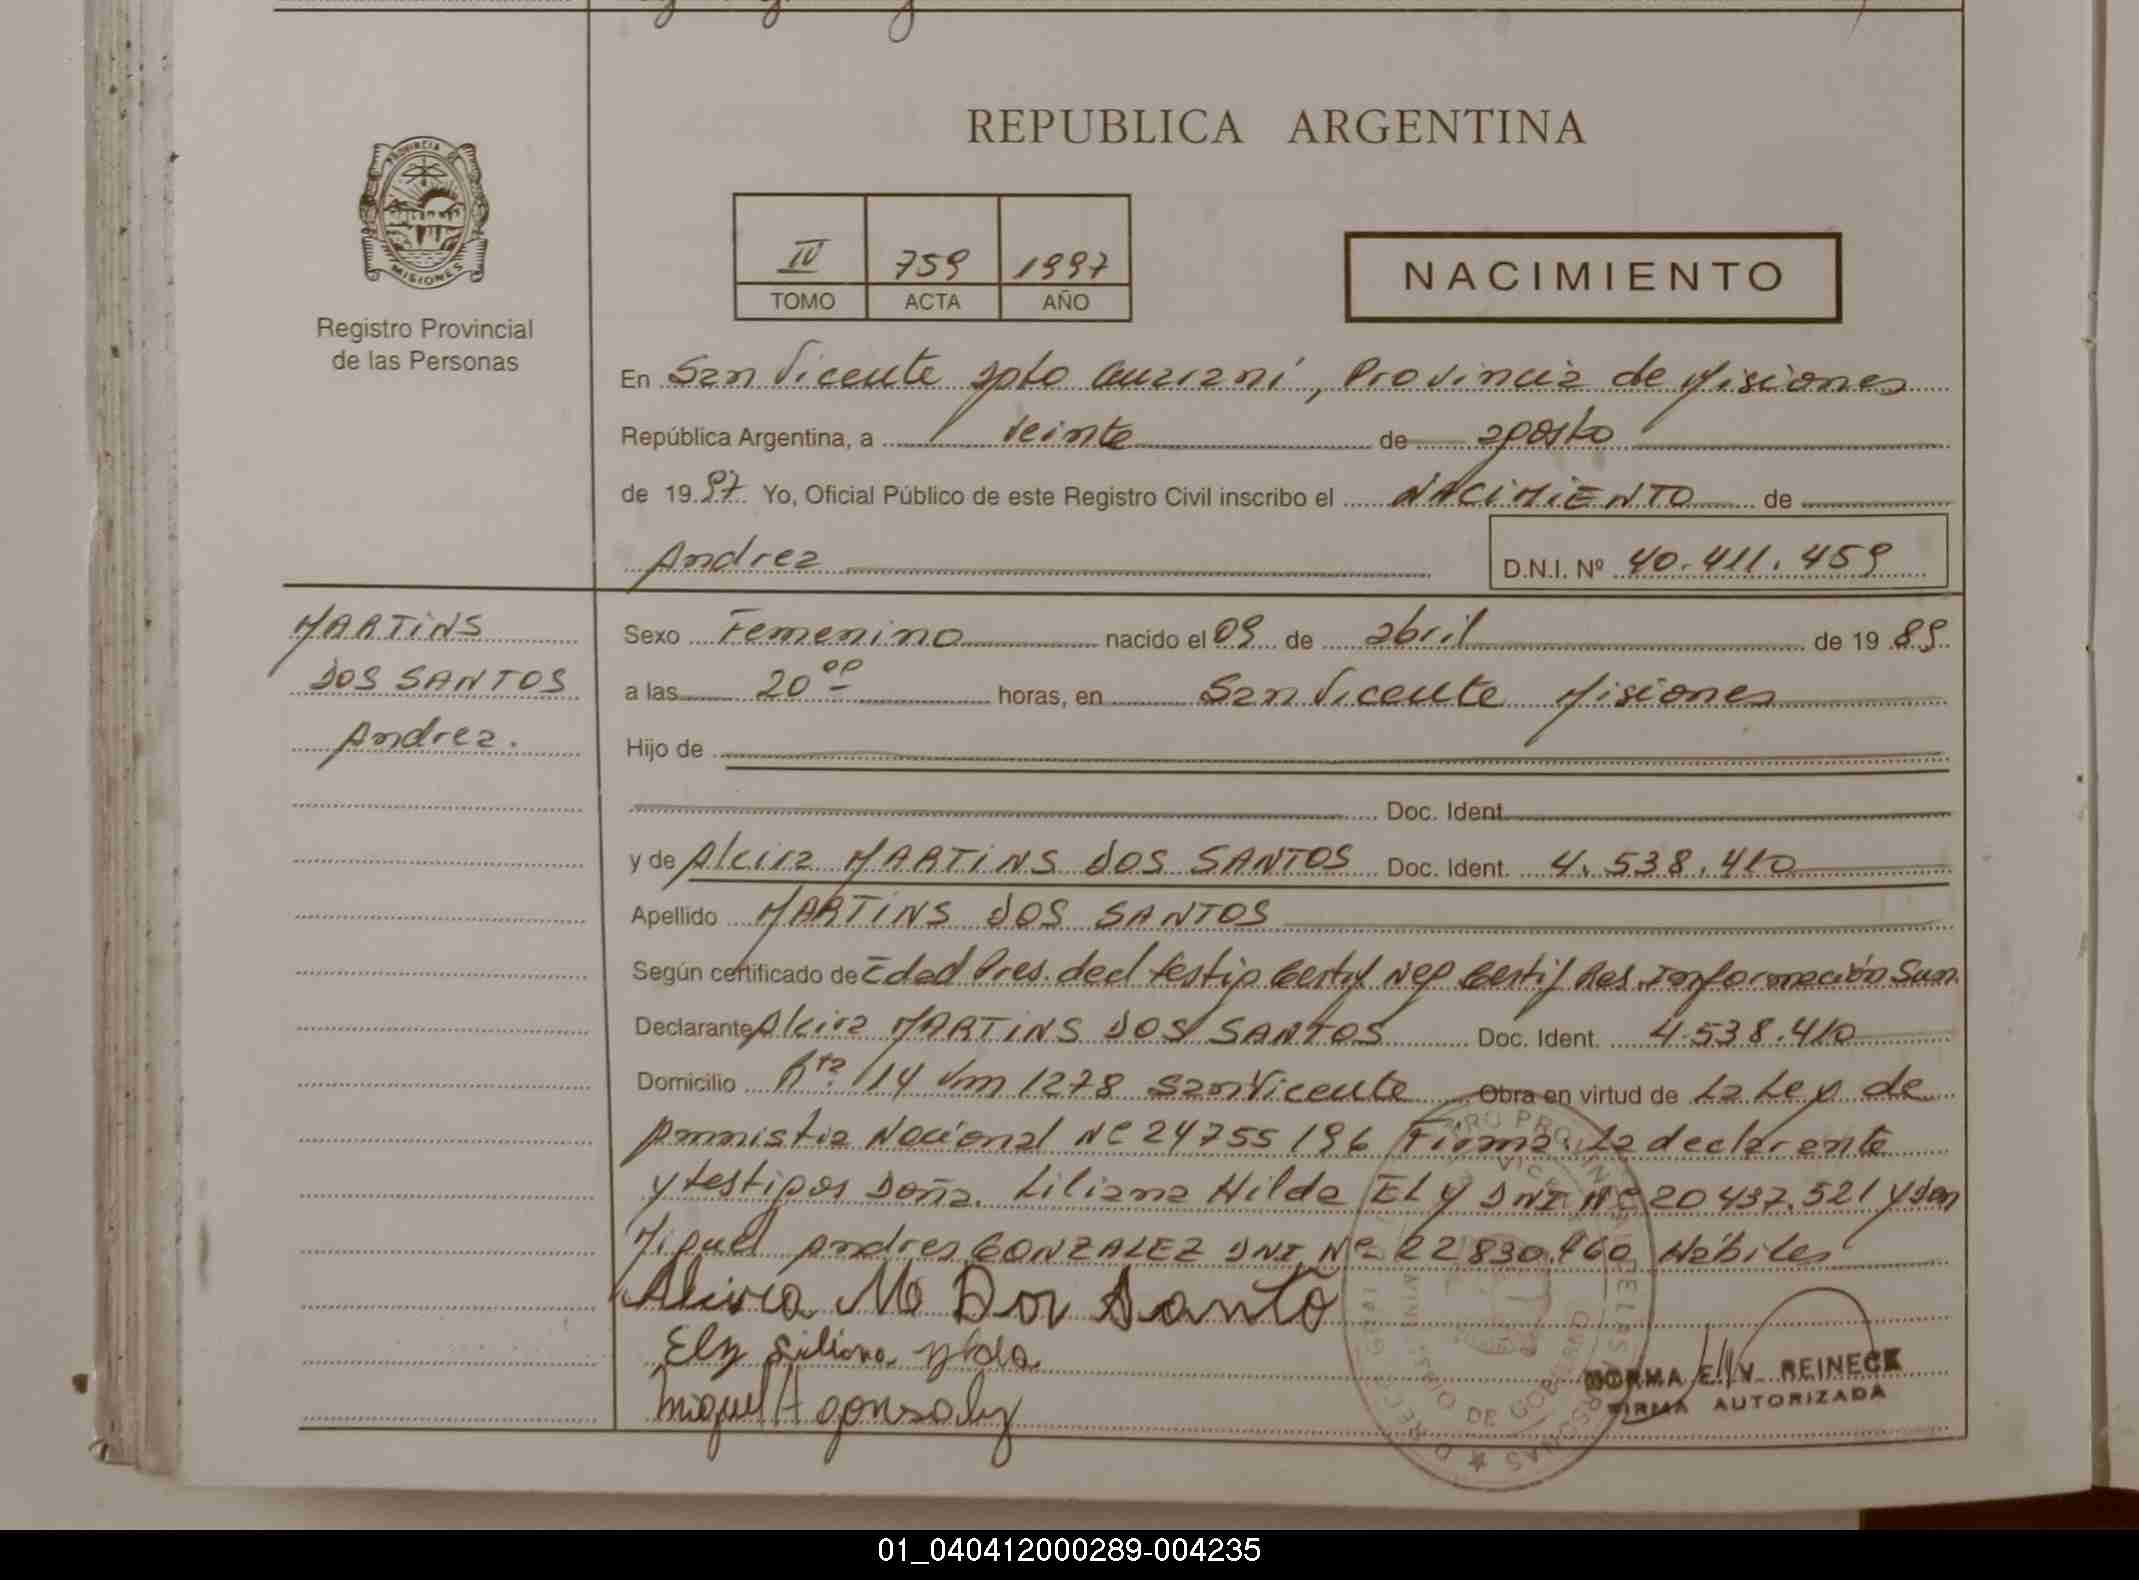 REPUBLICA ARGENTINA
PROVINCIA DE
MISIONES
Registro Provincial
de las Personas
IV 759 1997
TOMO ACTA AÑO
NACIMIENTO
En San Vicente Dpto Guarani, Provincia de Misiones
República Argentina, a veinte de agosto
de 1997 Yo, Oficial Público de este Registro Civil inscribo el NACIMIENTO de
Andrea
D.N.I. Nº 40.411.459
MARTINS
DOS SANTOS
Andrea.
Sexo Femenino nacido el 09 de abril de 1989
a las 20 00 horas, en San Vicente Misiones
Hijo de
Doc. Ident.
y de Alcira MARTINS DOS SANTOS Doc. Ident. 4.538.410
Apellido MARTINS DOS SANTOS
Según certificado de Edad Pres. decl testig Certif Neg Certif Res. Información Sum.
Declarante Alcira MARTINS DOS SANTOS Doc. Ident. 4.538.410
Domicilio Rta 14 Km 1278 San Vicente Obra en virtud de La Ley de
Amnistia Nacional Nº 24755/96 Firma: La declarante
y testigos Doña. Liliana Hilda ELY DNI Nº 20437.521 y Don
Miguel Andres GONZALEZ DNI Nº 22830.960 Hábiles
Alcira M Dos Santo
Ely Liliana ylda
Miguel A gonsalez
NORMA ELLY REINECK
FIRMA AUTORIZADA
01_040412000289-004235